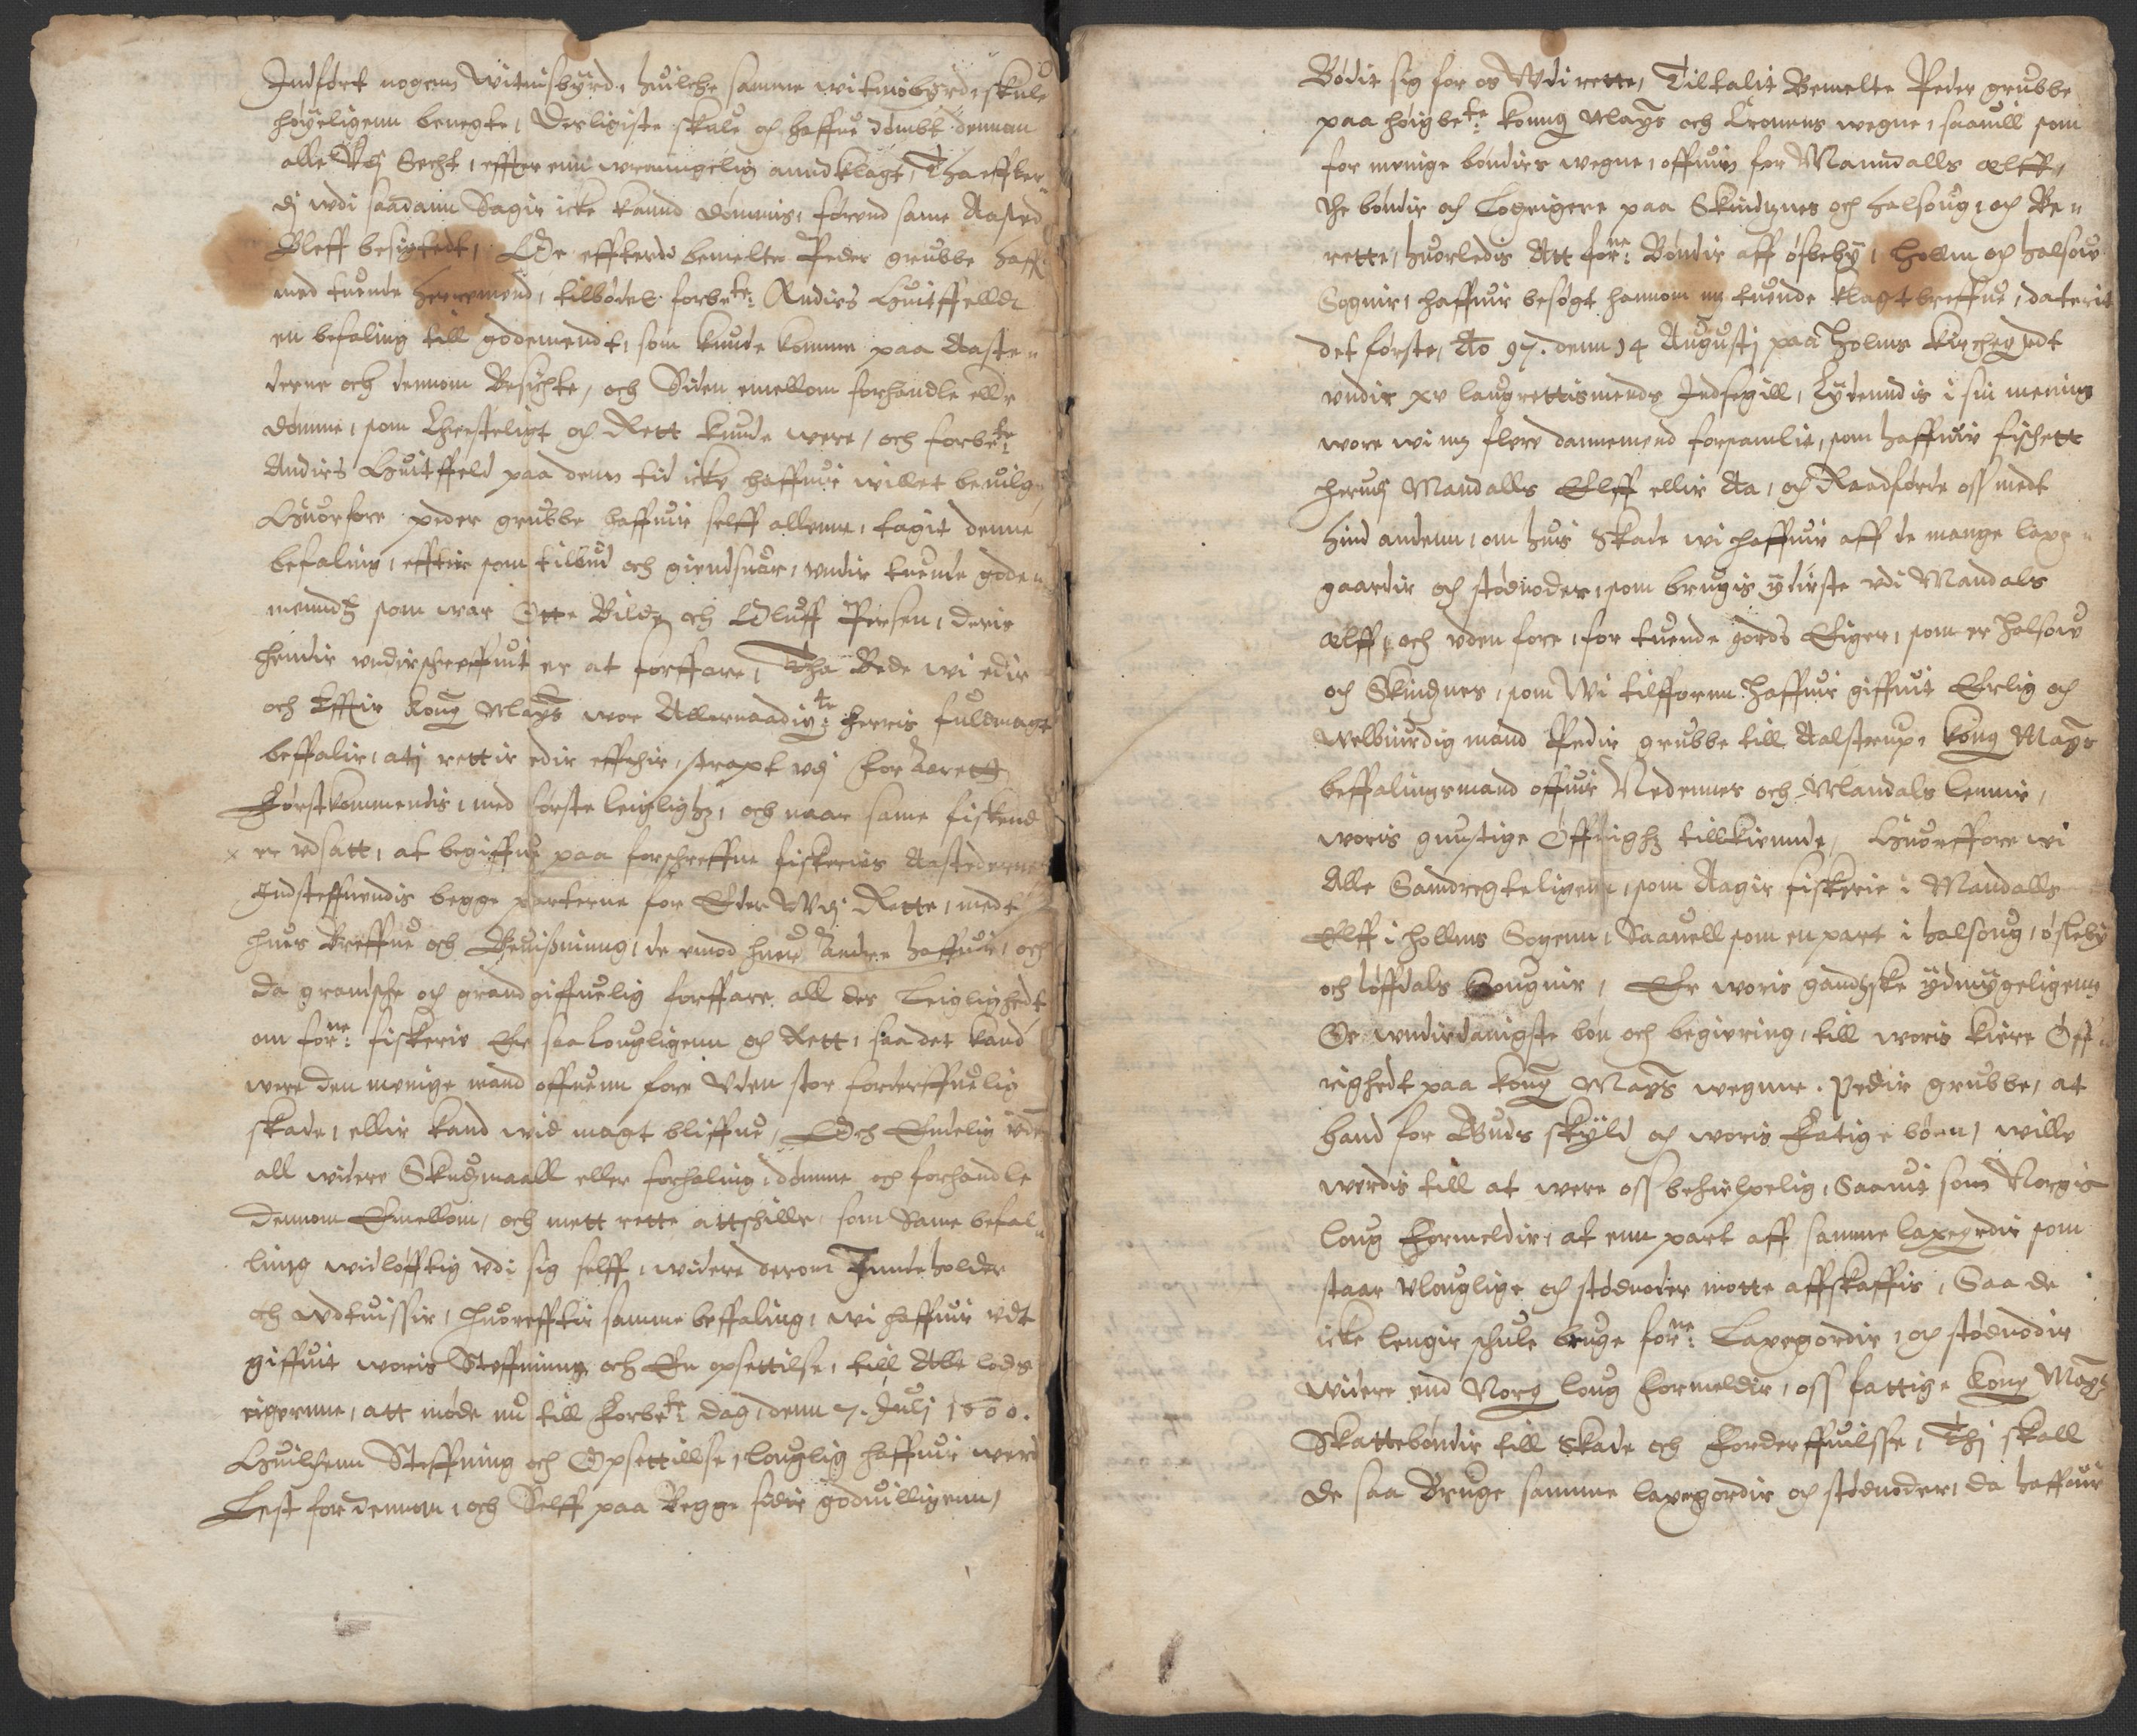 Indført nogenn witnisbyrd, huilche samme witnisbyrd, skule
høyeligenn benegte, Desligiste skule och haffue dømbt dennom
alle Vdj Secht, effter enn wranngelig anndklagt, Tha effter-
dj wdi saadann Sagir icke kannd dømmis, førend same Aasted
Bleff besigtedt, Och effterdi bemelte Peder grubbe haffr
med tuende herremend, tilbødet forbete: Andirs Huitffelldt
en befaling till godemendt, som kunde komme paa Aaste-
derne och dennom Besichte, och Siden emellom forhandle eller
dømme, som Christeligt och Rett kunde were, och forbete:
Andirs Huitffeld paa denn tid icke haffuir willet beuilge,
Huorfore peder grubbe haffuir selff allenne, tagit denne
befaling, effter som tilbud och giendsuar, vndir tuende gode-
menndtz som war Otte Bilde och Oluff Persen, deris
hendir vndirschreffuit er at forffare, Tha Bede wi edir
och Effter Kong Mayts wor Allernaadigte: herris fuldmagt
beffalir, atj rettir edir effter, straxt vdj for Aarett
Førstkommendis, med første leiglighz, och naar same fiskend
er vdsatt, at begiffue paa forschreffne fiskeries Aastederne
Indsteffnendis begge parterne for Eder Vdj Rette, medt
hues breffue och Beuisninng, de emod huer Andre haffuir, och
da grandsche och grandgiffuelig forffare all des Leiglighedt
om forne: fiskerie Er saa lougligenn och Rett, saa det kand
were den menige mand offuenn fore Vden stor forderffuelig
skade, ellir kand wid magt bliffue, Och Endelig vden
all widere Skudzmaall eller forhaling, dømme och forhandle
Dennom Emellom, och mett rette attschille, som Same befal-
ling widløfftig vdi sig selff, widere derom Inndeholder
och vdtuissir, huoreffter samme beffaling, wi haffuir vdt
giffuit woris Steffninng och En opsettilse, till Alle lods
eigerne, att møde nu till forbete: dag, denn 7. Julj 1600.
Huilchenn Steffning och Opsettillse, louglig haffuir werit
Lest for dennom, och Selff paa Begge sidir goduilligenn,
Bødit sig for os Vdi rette, Tiltalit Bemelte Peder grubbe
paa høigbete: konng Mayts och Cronens wegne, saauill som
for menige bøndirs wegne, offuen for Manndalls Elff,
the bøndir och Lodzeigere paa Skindznes och halsoug, och Be-
rette, huorledis Att forne: Bøndir aff øfleby, hollm och halsow
Sognir, haffuir besøgt hannom mz tuende klagtbreffue, daterit
det første, Ao 97. denn 14 Augustj paa holms kirchegordt
vndir xv laugrettismends Indsegill, Lydenndis i sin mening
wore wi mz flere dannemend forsamlit, som haffuir fischett
her vdj Mandalls Elff ellir Aa, och Raadførde oss medt
hind andenn, om huis Skade wi haffuir aff de mange laxe-
gaardir och stødnoder, som brugis yderste vdi Mandals
Elff, och vden fore, for tuende gords Eiger, som er halsow
och Skindznes, som Wi tilfforenn haffuir giffuit Erlig och
welbiurdig mand Pedir grubbe till Aalstrup, Kong Mayts
beffalingsmand offuir Nedennes och Mandals lenner,
woris gunstige Øffrighz tillkiennde, Huorffore wi
Alle Samdregteligenn, som Aagir fiskerie i Mandalls
Elff i hollms Sogenn, Saauell som en part i halsoug, øfleby
och løffdals Sougnir, Er woris gandzske ydmygeligenn
Oc vnndirdanigste bøn och begiering, till woris kiere Øff-
righedt paa kong Mayts wegnne. Pedir grubbe, at
hand for Guds skyld och woris Fatige bønn, wille
werdis till at were oss behielpelig, Saauit som Norgis
loug Formeldir, at enn part aff samme laxegordir som
staar vlouglige och stødnoder motte affskaffis, Saa de
icke lengir schule bruge forne: Laxegordir, och stødnodir
widere end Norg loug formeldir, oss fattige Kong Mayts
Skattebøndir till Skade och Forderffuilsse, Thj skall
de saa Bruge samme laxegordir och stødnoder, da haffuir